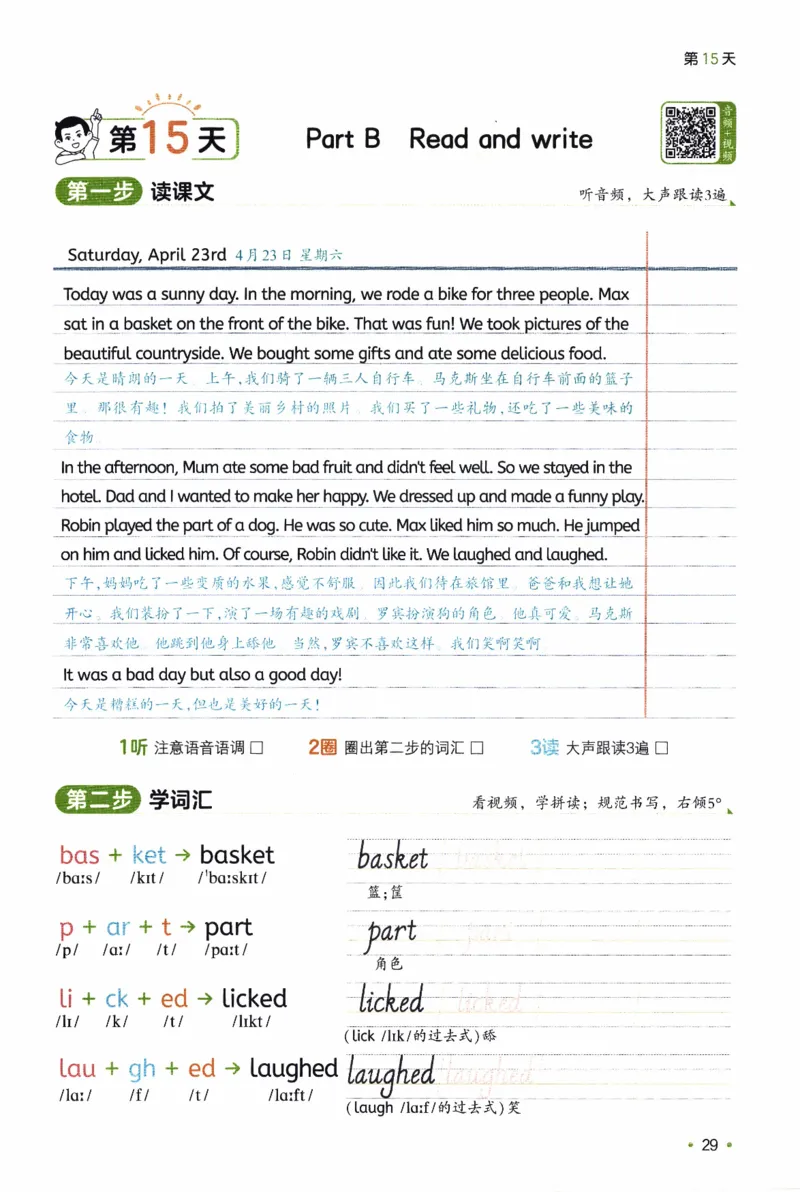 第15天
第15天
Part B Read and write
音频+视频
第一步 读课文
听音频，大声跟读3遍
Saturday, April 23rd 4月23日 星期六
Today was a sunny day. In the morning, we rode a bike for three people. Max
sat in a basket on the front of the bike. That was fun! We took pictures of the
beautiful countryside. We bought some gifts and ate some delicious food.
今天是晴朗的一天。上午,我们骑了一辆三人自行车。马克斯坐在自行车前面的篮子
里。那很有趣！我们拍了美丽乡村的照片。我们买了一些礼物,还吃了一些美味的
食物。
In the afternoon, Mum ate some bad fruit and didn't feel well. So we stayed in the
hotel. Dad and I wanted to make her happy. We dressed up and made a funny play.
Robin played the part of a dog. He was so cute. Max liked him so much. He jumped
on him and licked him. Of course, Robin didn't like it. We laughed and laughed.
下午,妈妈吃了一些变质的水果,感觉不舒服。因此我们待在旅馆里。爸爸和我想让她
开心。我们装扮了一下,演了一场有趣的戏剧。罗宾扮演狗的角色。他真可爱。马克斯
非常喜欢他。他跳到他身上舔他。当然,罗宾不喜欢这样。我们笑啊笑啊。
It was a bad day but also a good day!
今天是糟糕的一天,但也是美好的一天！
1听 注意语音语调 □ 2圈 圈出第二步的词汇 □ 3读 大声跟读3遍 □
第二步 学词汇
看视频，学拼读；规范书写，右倾5°
bas + ket → basket basket basket
/bɑːs/ /kɪt/ /ˈbɑːskɪt/
篮;筐
p + ar + t → part part part
/p/ /ɑː/ /t/ /pɑːt/
角色
li + ck + ed → licked licked licked
/lɪ/ /k/ /t/ /lɪkt/
(lick /lɪk/的过去式)舔
lau + gh + ed → laughed laughed laughed
/lɑː/ /f/ /t/ /lɑːft/
(laugh /lɑːf/的过去式)笑
29